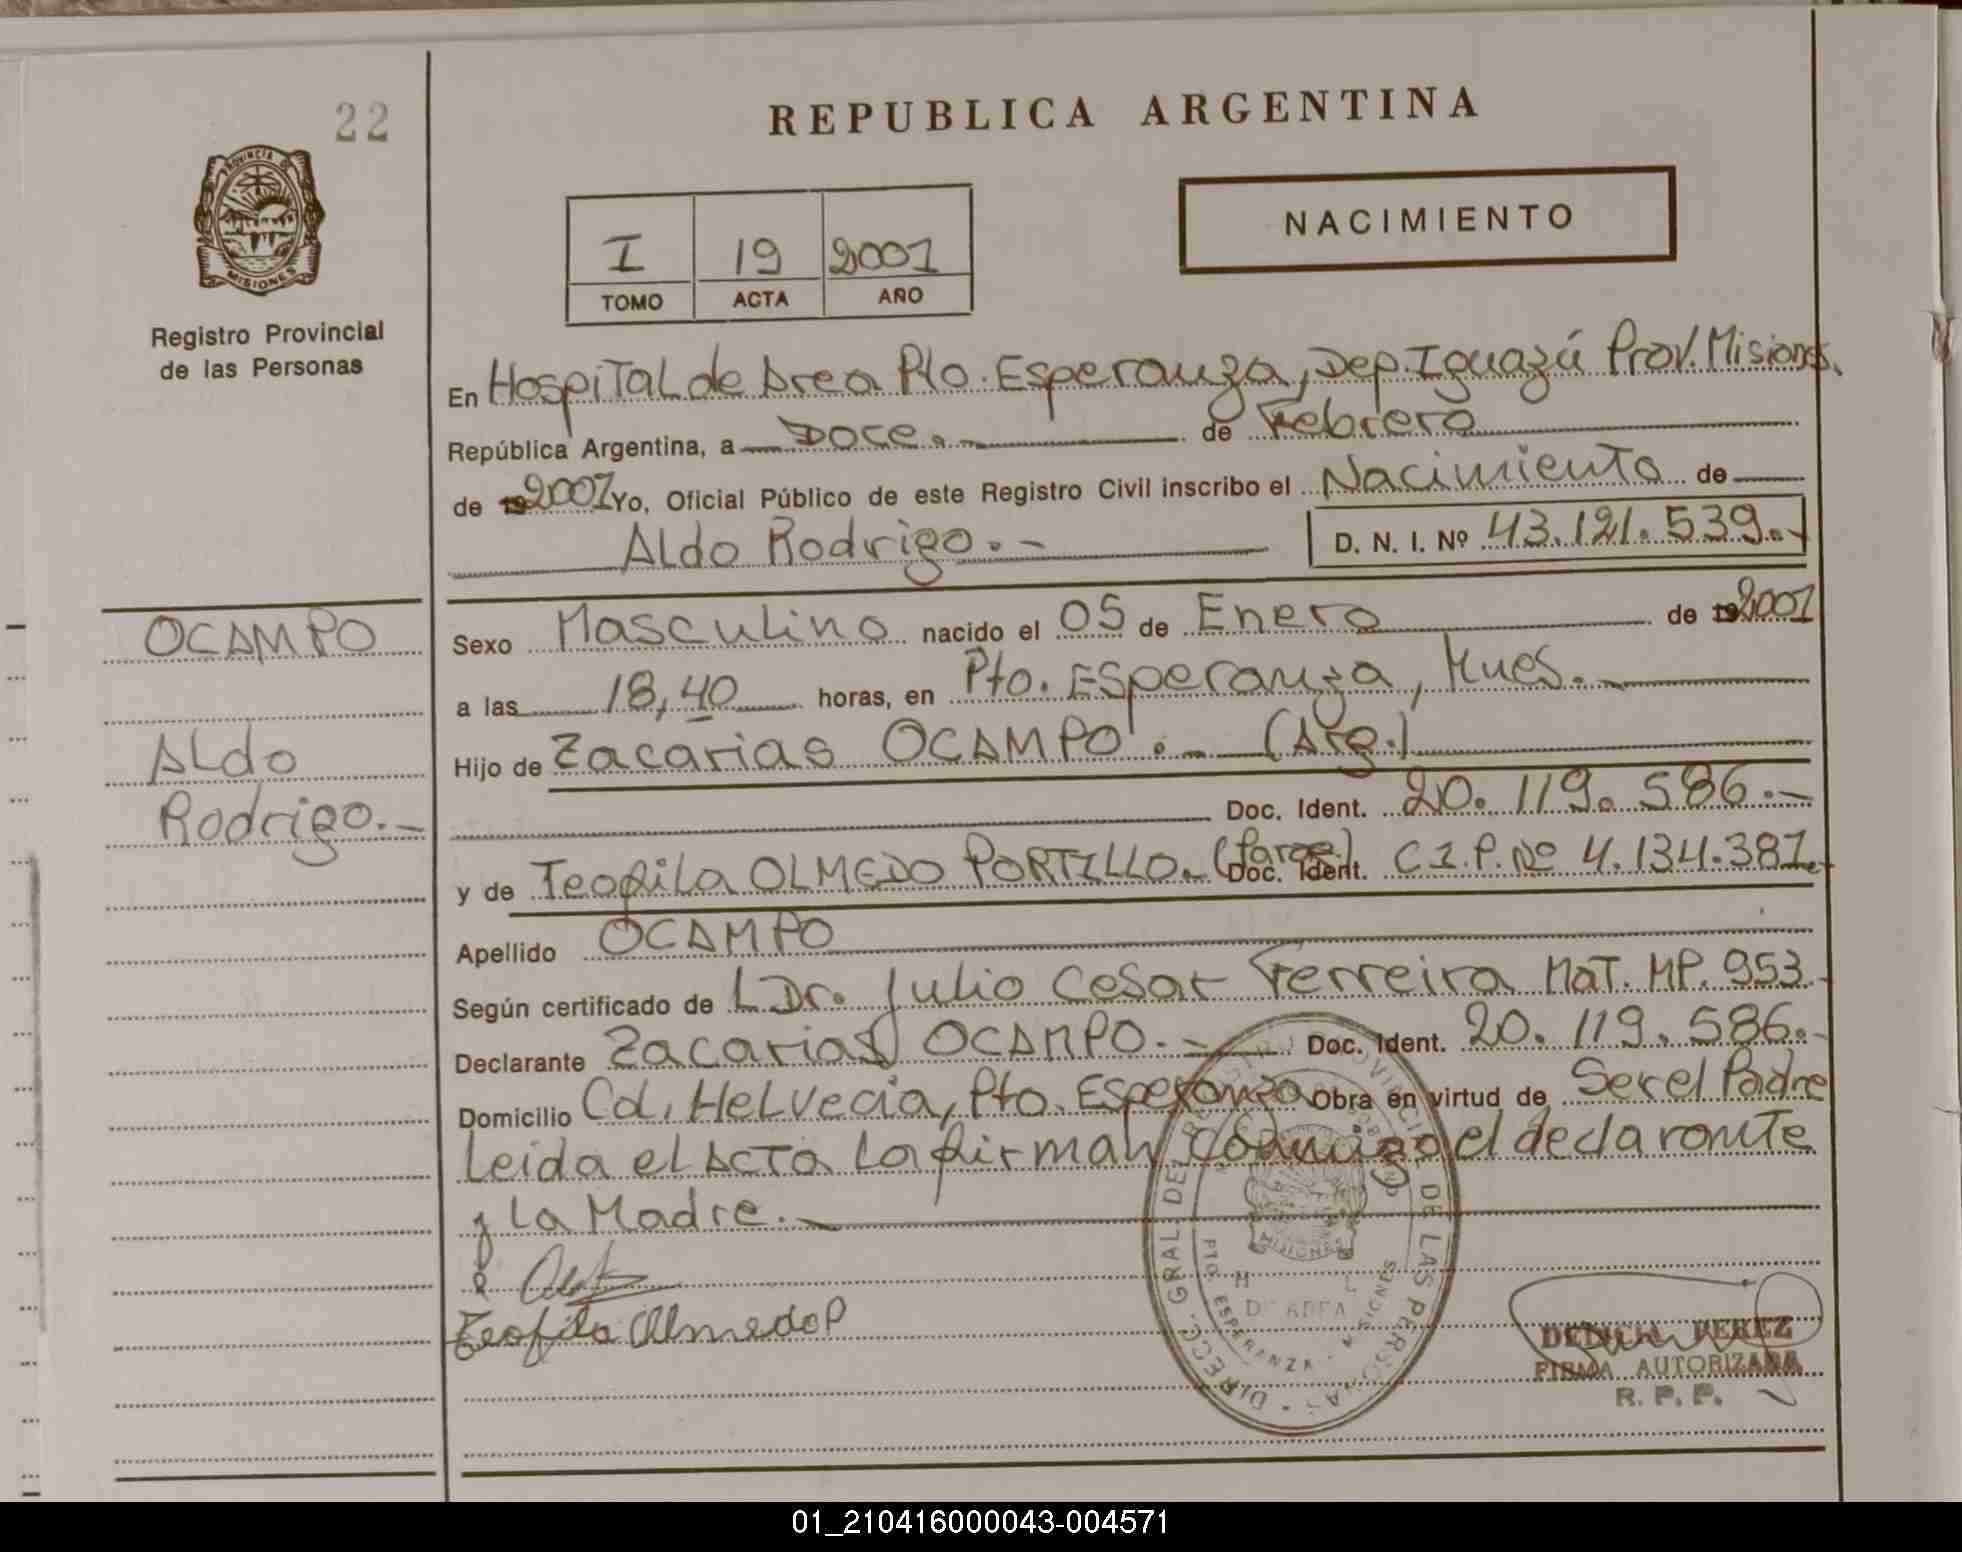 22
REPUBLICA ARGENTINA
PROVINCIA DE
MISIONES
Registro Provincial
de las Personas
I 19 2001
TOMO ACTA AÑO
NACIMIENTO
En Hospital de Area Pto. Esperanza, Dep. Iguazú Prov. Misiones.
República Argentina, a Doce.- de Febrero
de 19 2001 Yo, Oficial Público de este Registro Civil inscribo el Nacimiento de
Aldo Rodrigo.- D. N. I. Nº 43.121.539.-
OCAMPO
Aldo
Rodrigo.-
Sexo Masculino nacido el 05 de Enero de 19 2001
a las 18,40 horas, en Pto. Esperanza, Mnes.-
Hijo de Zacarias OCAMPO.- (Arg.)
Doc. Ident. 20.119.586.-
y de Teofila OLMEDO PORTILLO.- (Parag.) Doc. Ident. C.I.P. Nº 4.134.381.-
Apellido OCAMPO
Según certificado de Dr. Julio Cesar Ferreira Mat. MP. 953.-
Declarante Zacarias OCAMPO.- Doc. Ident. 20.119.586.-
Domicilio Cd. Helvecia, Pto. Esperanza Obra en virtud de Ser el Padre
Leida el Acta la firman conmigo el declarante
y La Madre.-
Teofila Olmedo P
DIRECC. GRAL. DEL REGISTRO PROVINCIAL DE LAS PERSONAS
MISIONES
PTO. ESPERANZA - MISIONES
DE AREA
PEREZ
FIRMA AUTORIZADA
R. P. P.
01_210416000043-004571